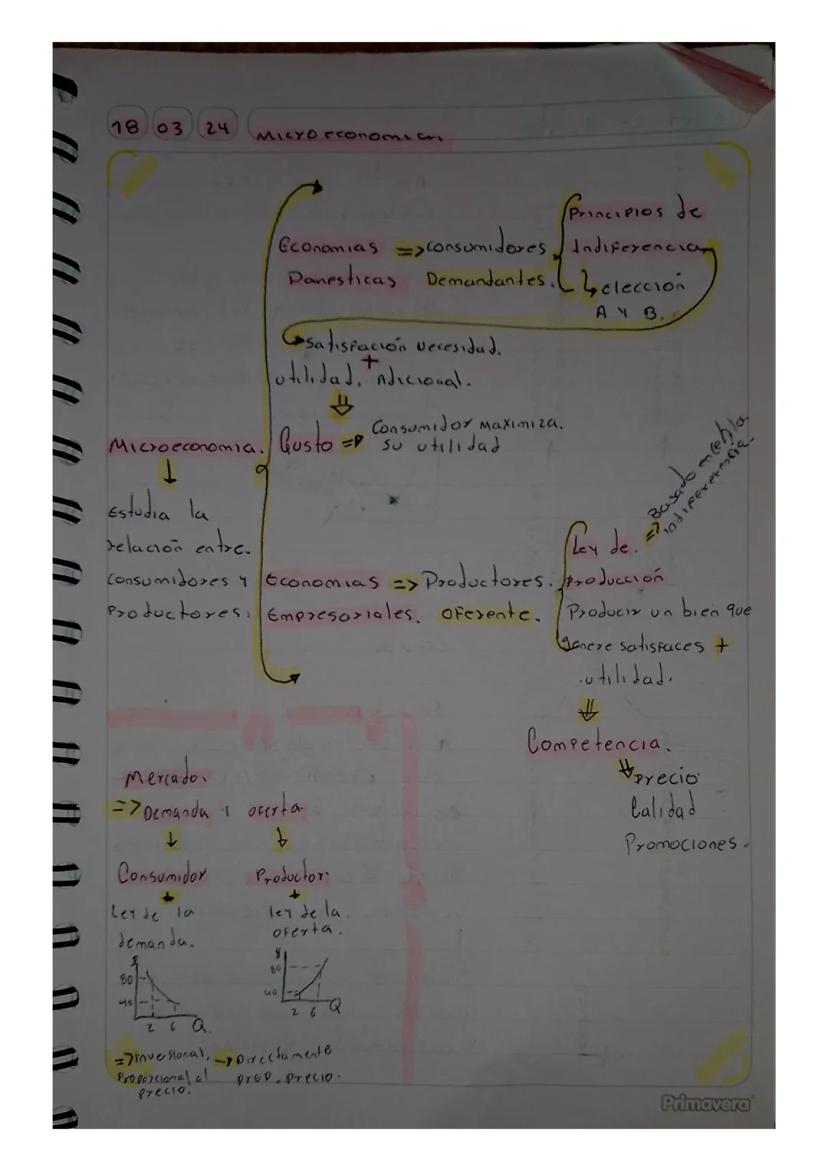 18 03 24 Microeconomica
Economias => consumidores
Domesticas Demandantes.
Principios de
Indiferencia
↳ elección
A y B.
Satisfación necesidad.
+
utilidad. Adicional.
⇓
Gusto => Consumidor maximiza.
su utilidad
Microeconomia.
↓
Estudia la
relación entre.
consumidores y
Productores.
Economias => Productores.
Empresariales. Oferente.
Ley de.
Producción
=> Basado en la
indiferencia.
Producir un bien que
genere satisfaces +
utilidad.
⇓
Competencia.
⇓ Precio
Calidad
Promociones.
Mercado.
=> Demanda y oferta.
↓ ↓
Consumidor Productor.
Ley de la
demanda.
ley de la.
oferta.
$
80
40
2 6 Q
$
80
40
2 6 Q
=> Inversional.
Proporcional al
Precio.
→ Directamente
prop. precio.
Primavera